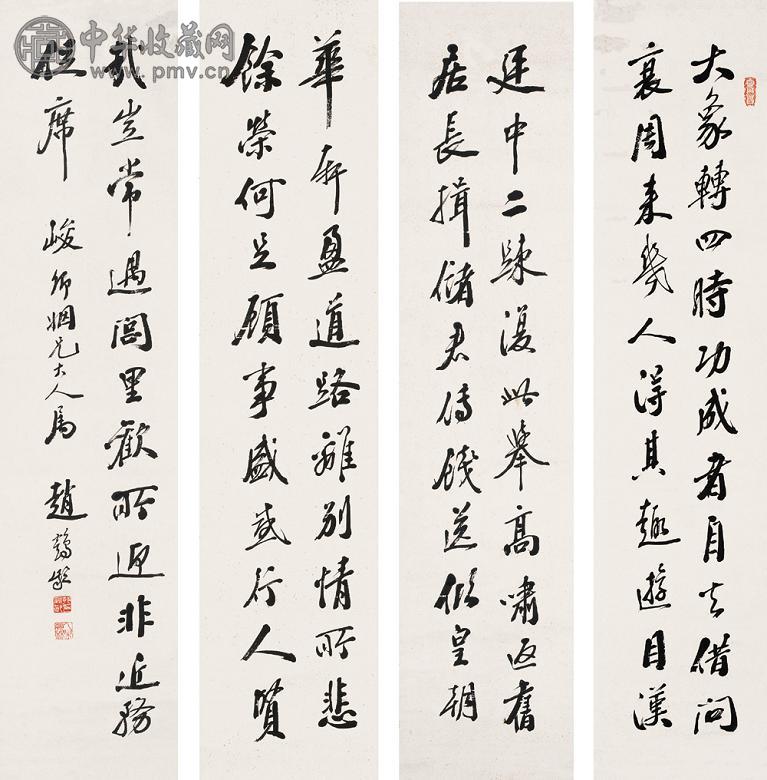 中华收藏网
www.pmv.cn
大象轉四時功成者自去借問
衰周来幾人得其趣遊目漢
廷中二踈復此舉高嘯返舊
居長揖儲君傅餞送傾皇朝
華軒盈道路離別情所悲
餘榮何足顧事盛感行人賢
哉豈常過閭里歡所迎非近務
促席 峻卿姻兄大人属 趙